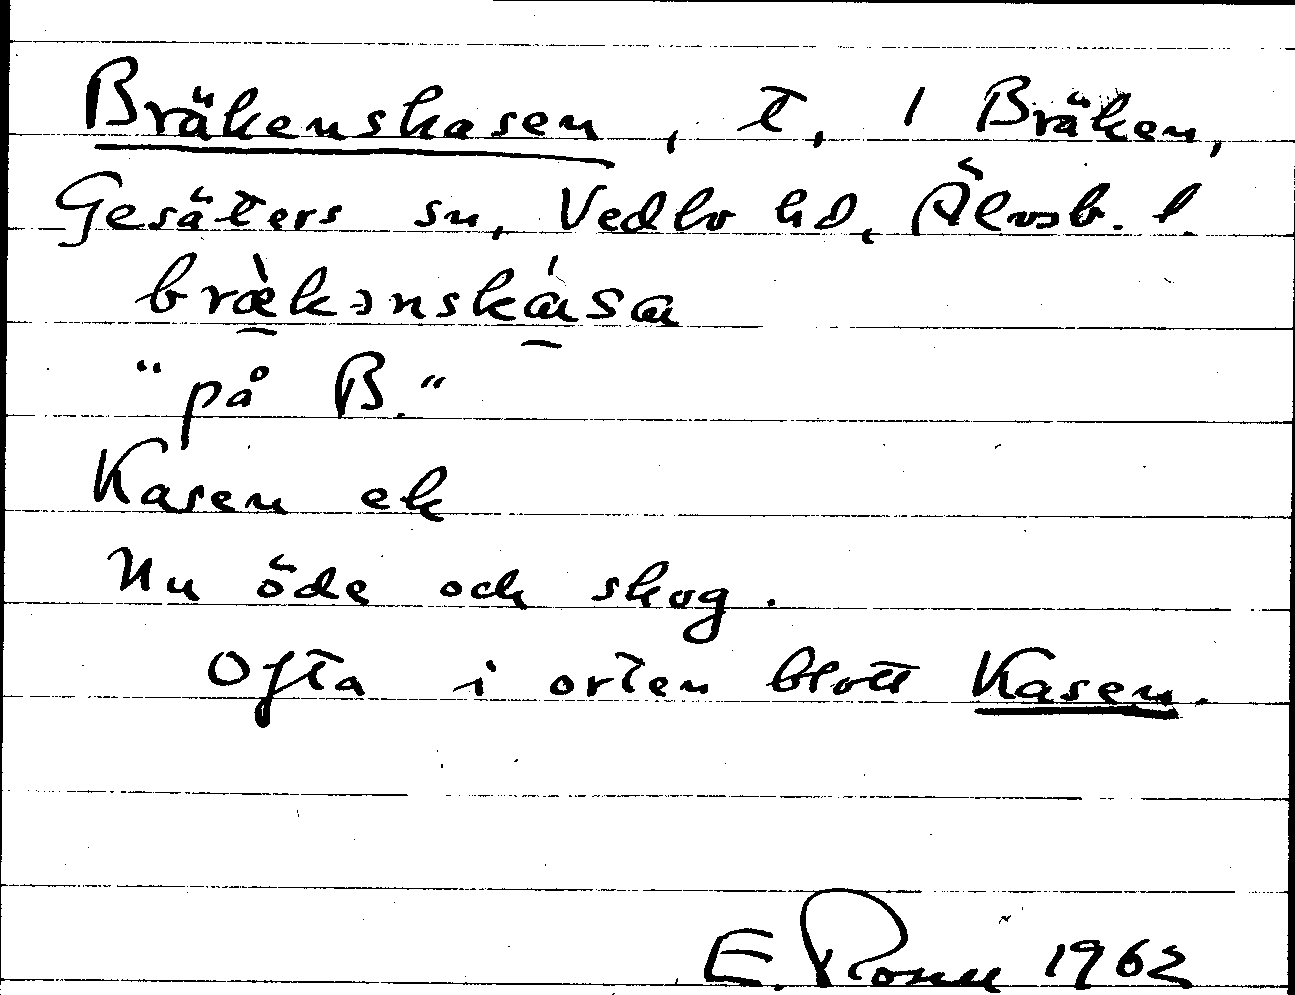 Bräkenskasen, t, 1 Bräken,
Gesäters sn, Vedbo hd, Älvsb. l.
bræ̀kənskása
"på B."
Kasen ek
Nu öde och skog.
Ofta i orten blott Kasen.
E. 1962